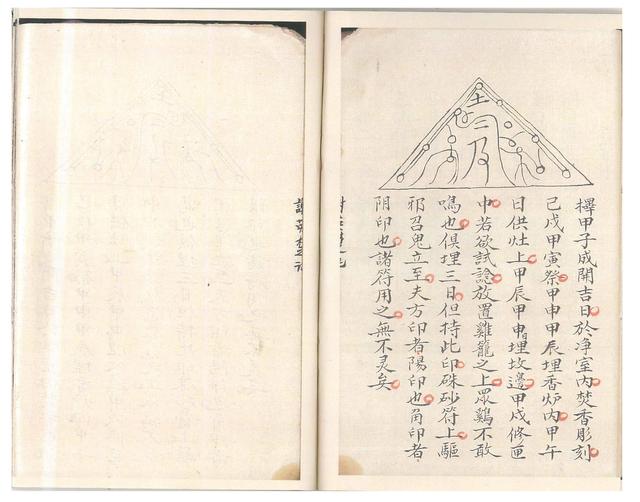 土
二
乃
擇甲子成開吉日於净室内焚香彫刻
己戊甲寅祭甲申甲辰埋香炉内甲午
日供灶上甲辰甲申埋坟邊甲戍修匣
中若欲試諗放置雞籠之上眾鷄不敢
鳴也俱埋三日但持此印硃砂符上驅
邪召鬼立至夫方印者陽印也角印者
阴印也諸符用之無不灵矣